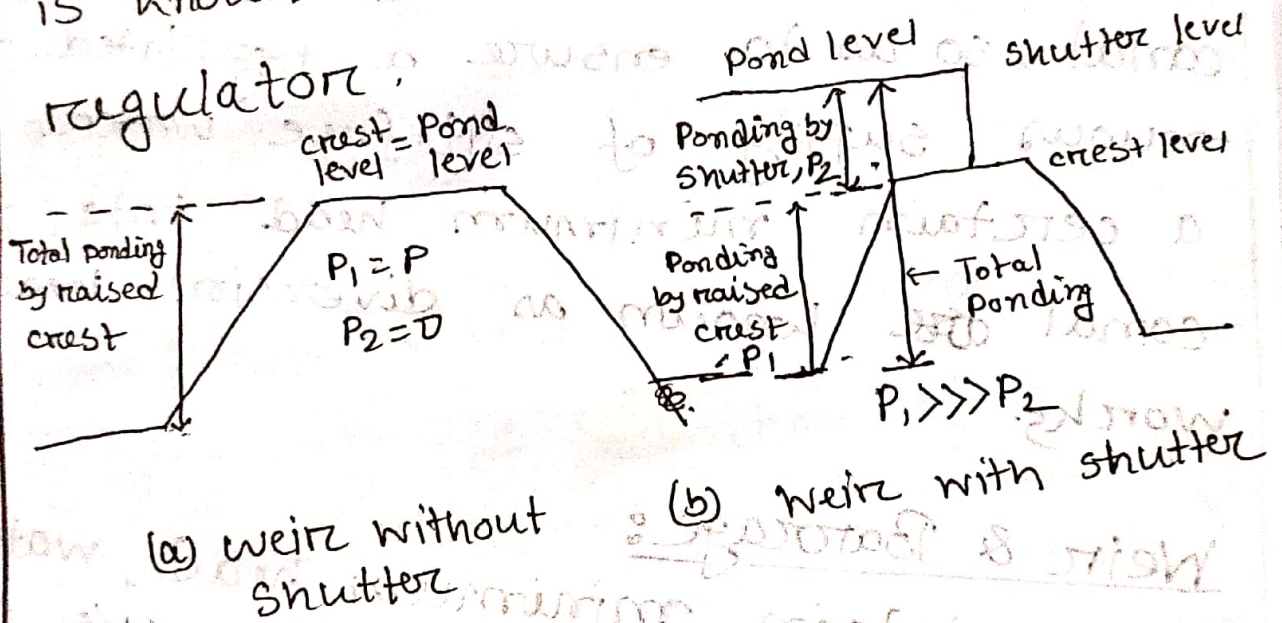 is
regulator.
crest = Pond
level level
Total ponding
by raised
crest
P₁ = P
P₂ = 0
(a) weir without
shutter
Pond level
shutter level
Ponding by
shutter, P₂
crest level
Ponding
by raised
crest
P₁
← Total
Ponding
P₁ >>> P₂
(b) weir with shutter